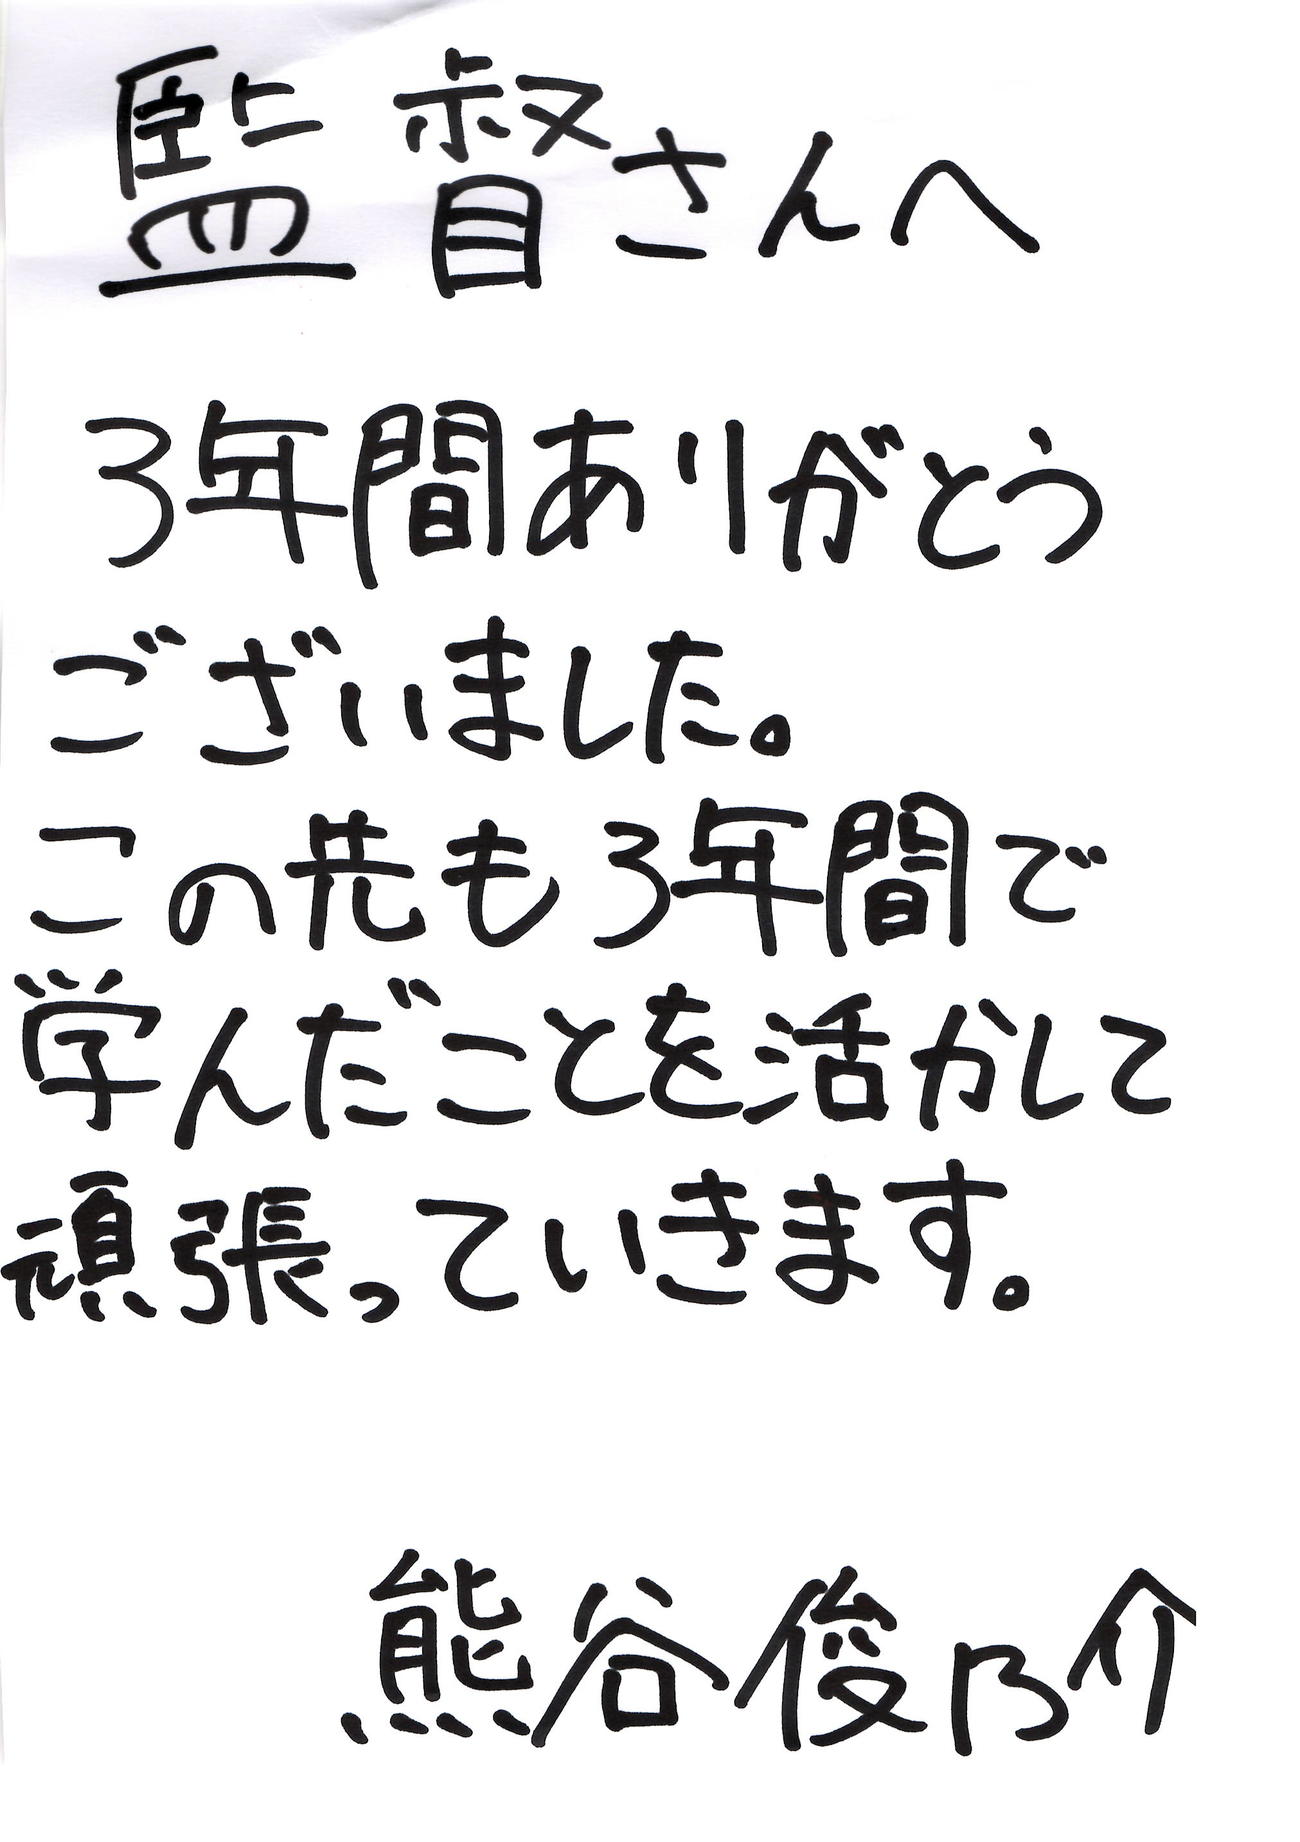 監督さんへ
3年間ありがとう
ございました。
この先も3年間で
学んだことを活かして
頑張っていきます。
熊谷俊乃介